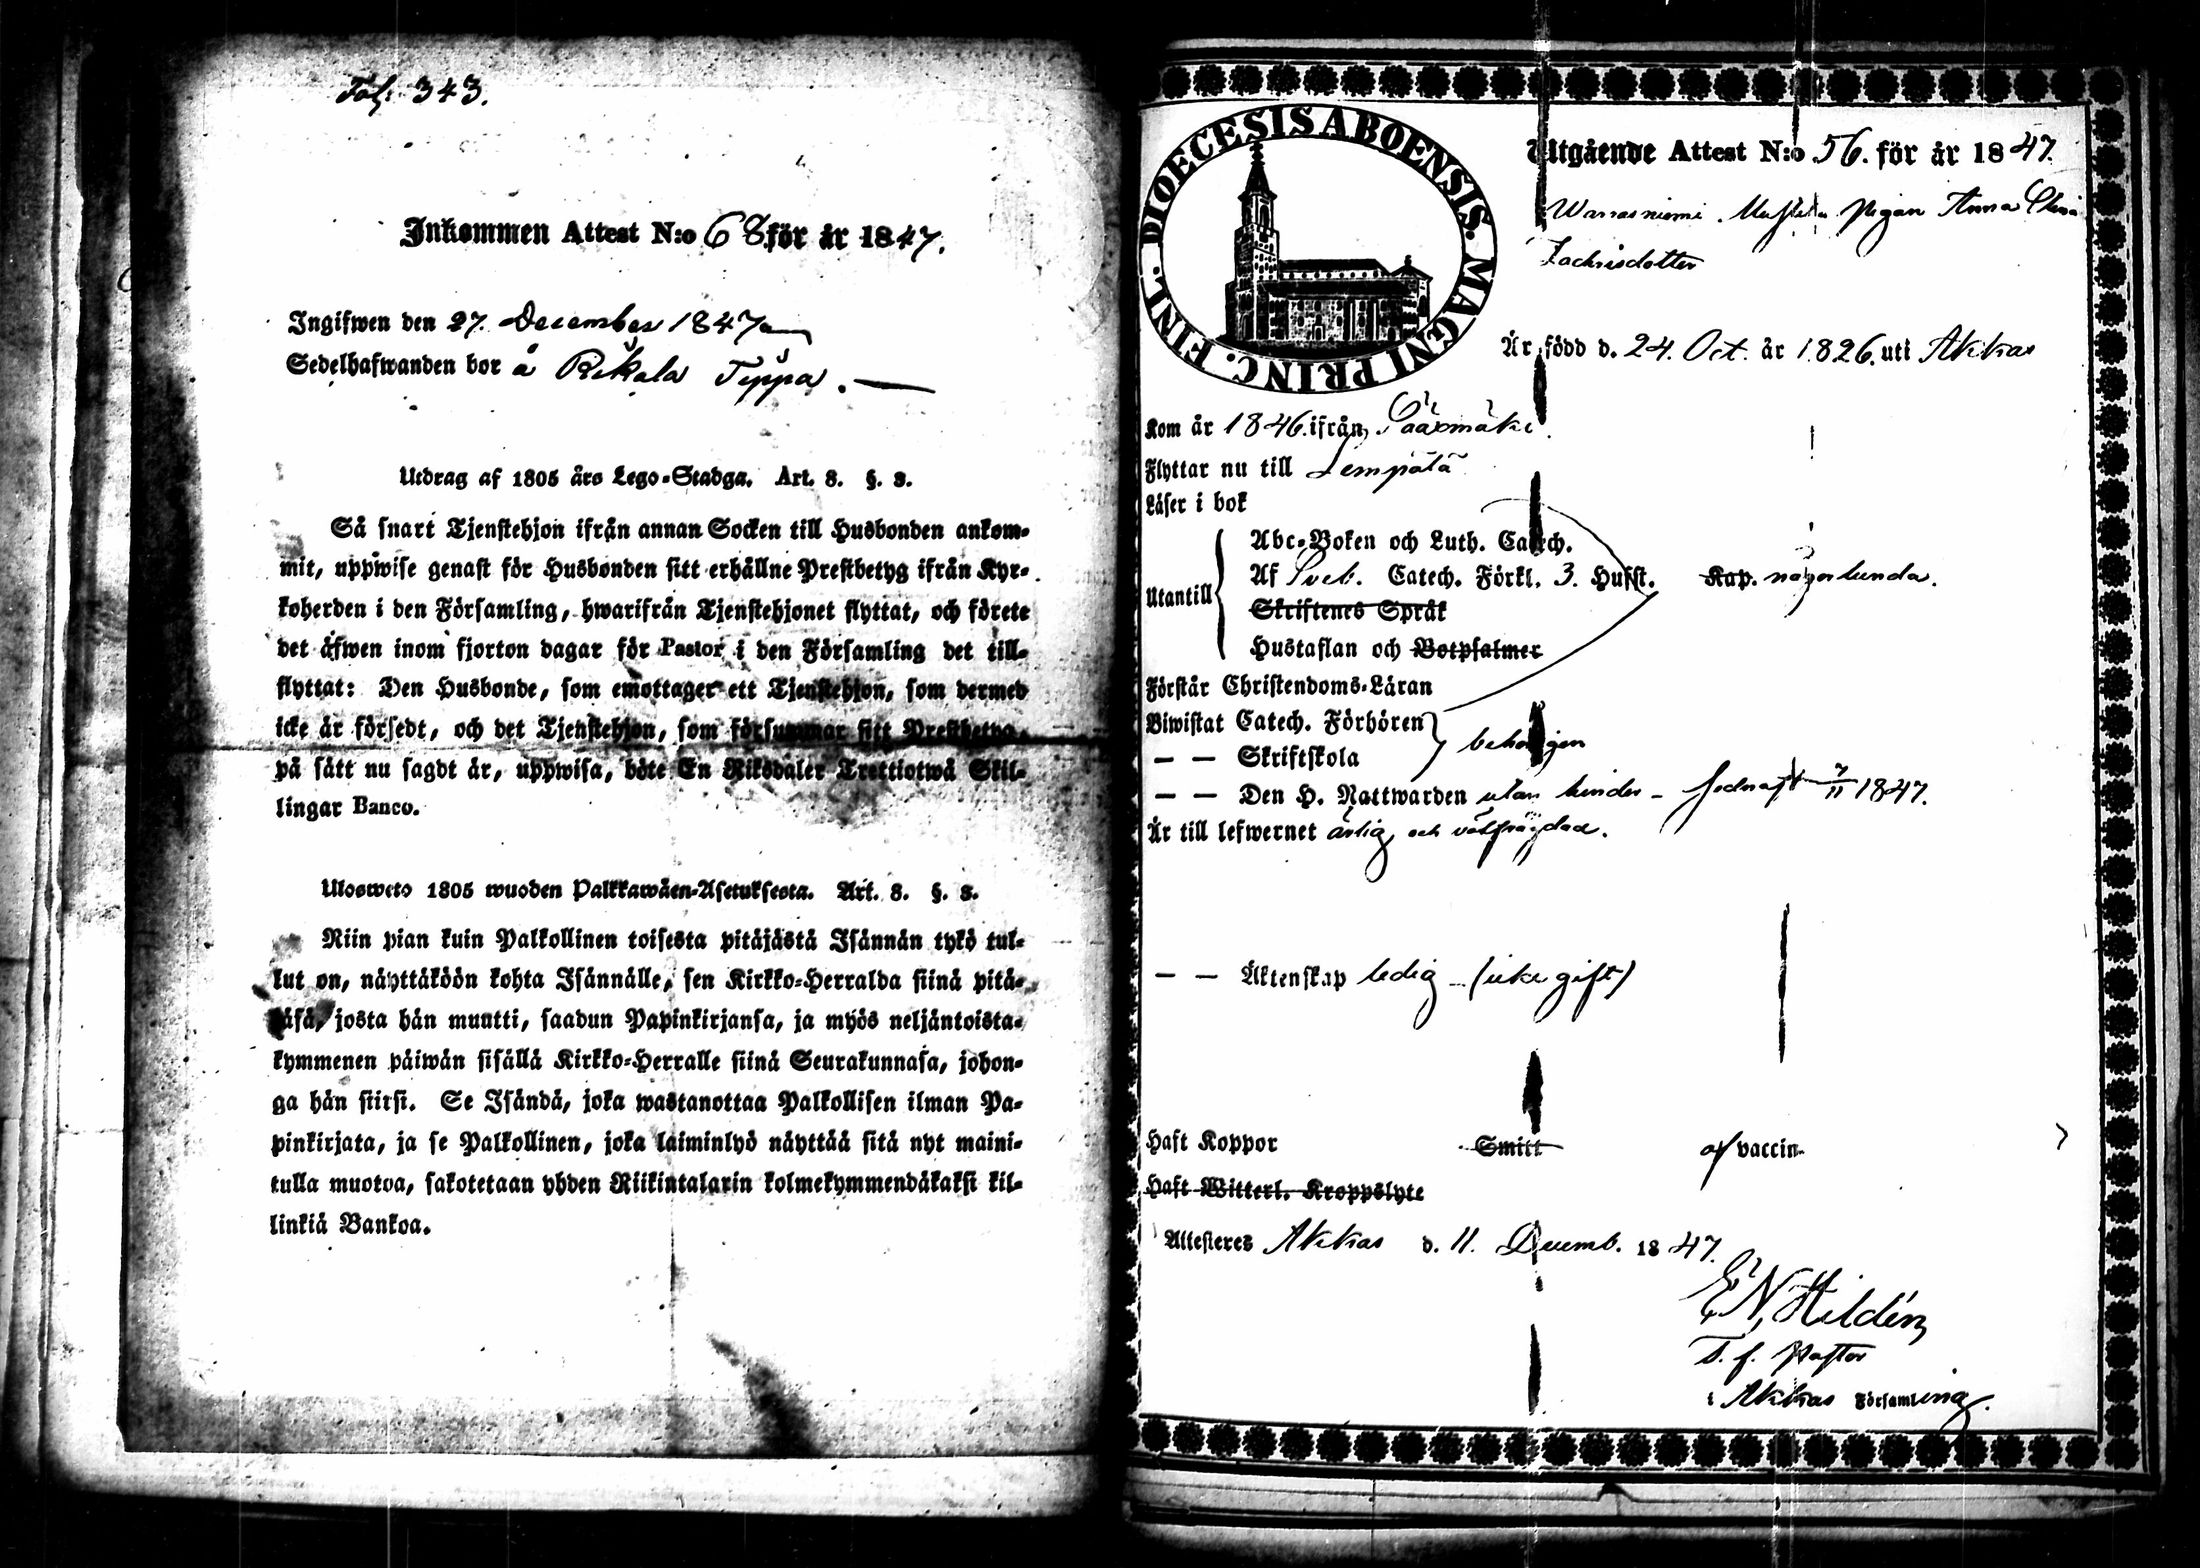 Fol: 343.
Inkommen Attest N:o 68 för år 1847.
Ingifwen den 27. December 1847
Sedelhafwanden bor å Rikala Töppa.
Utdrag af 1805 års Lego-Stadga. Art. 8. §. 3.
Så snart Tjenstehjon ifrån annan Socken till Husbonden ankom-
mit, uppwise genast för Husbonden sitt erhållne Prestbetyg ifrån Kyr-
koherden i den Församling, hwarifrån Tjenstehjonet flyttat, och förete
det äfwen inom fjorton dagar för Pastor i den Församling det till-
flyttat: Den Husbonde, som emottager ett Tjenstehjon, som dermed
icke är försedt, och det Tjenstehjon, som försummar sitt Prestbetyg,
på sätt nu sagdt är, uppwisa, böte En Riksdaler Trettiotwå Skil-
lingar Banco.
Ulosweto 1805 wuoden Palkkawäen-Asetuksesta. Art. 8. §. 3.
Niin pian kuin Palkollinen toisesta pitäjästä Isännän tykö tul-
lut on, näyttäköön kohta Isännälle, sen Kirkko-Herralda siinä pitä-
jäsä, josta hän muutti, saadun Papinkirjansa, ja myös neljäntoista-
kymmenen päiwän sisällä Kirkko-Herralle siinä Seurakunnasa, johon-
ga hän siirsi. Se Isändä, joka wastanottaa Palkollisen ilman Pa-
pinkirjata, ja se Palkollinen, joka laiminlyö näyttää sitä nyt maini-
tulla muotoa, sakotetaan yhden Riikintalarin kolmekymmendäkaksi kil-
linkiä Bankoa.
DIOECESIS ABOENSIS. MAGNI PRINC. FINL.
Utgående Attest N:o 56. för år 1847.
Warrasniemi Pigan Anna
Zachrisdotter
Är född d. 24. Oct. år 1826. uti Akkas
Kom år 1846. ifrån Sääxmäki.
Flyttar nu till Lempälä
Läser i bok
Utantill
Abc-Boken och Luth. Catech.
Af Sveb. Catech. Förkl. 3. Hufst. Kap. någorlunda.
Skriftenes Språk
Hustaflan och Botpsalmer
Förstår Christendoms-Läran
Biwistat Catech. Förhören
— — Skriftskola behörigen
— — Den H. Nattwarden utan hinder – sednast 7/11 1847.
Är till lefwernet ärlig och välfräjdad.
— — Äktenskap ledig – (icke gift)
Haft Koppor Smitt af vaccin-
Haft Witterl. Kroppslyte
Attesteres Akkas d. 11. Decemb. 1847.
E N Hildén
T. f. Pastor
i Akkas Församling.